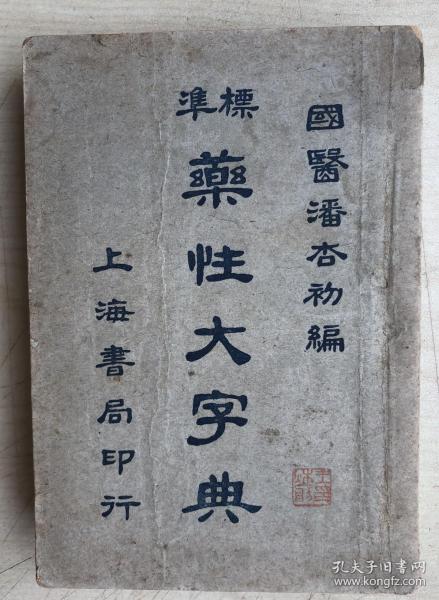 國醫潘杏初編
標準
藥性大字典
上海書局印行
孔夫子旧书网
book.kongfz.com